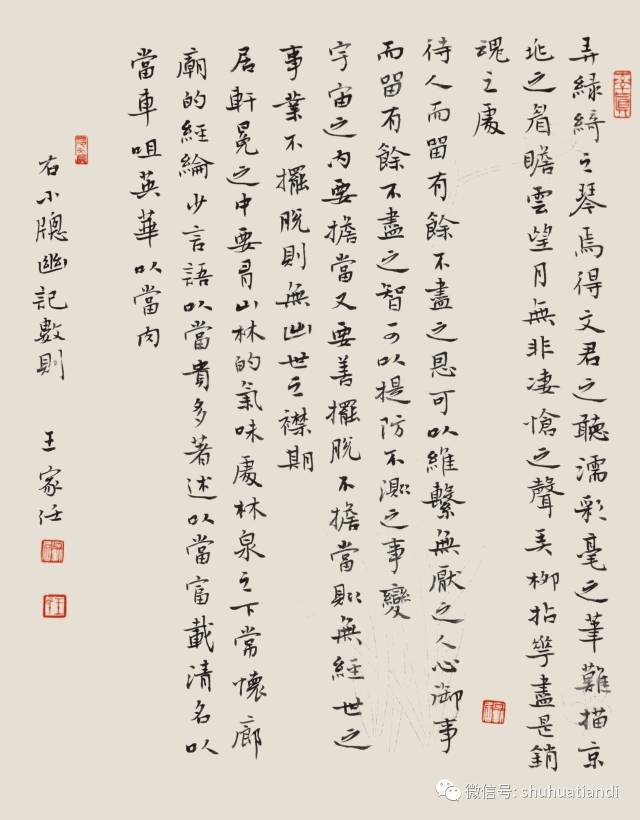 弄綠綺之琴焉得文君之聽濡彩毫之筆難描京
兆之眉瞻雲望月無非淒愴之聲弄柳拈花盡是銷
魂之處
待人而留有餘不盡之恩可以維繫無厭之人心御事
而留有餘不盡之智可以提防不測之事變
宇宙之內要擔當又要善擺脫不擔當則無經世之
事業不擺脫則無出世之襟期
居軒冕之中要有山林的氣味處林泉之下常懷廊
廟的經綸少言語以當貴多著述以當富載清名以
當車咀英華以當肉
右小牕幽記數則 王家任
微信号: shuhuatiandi